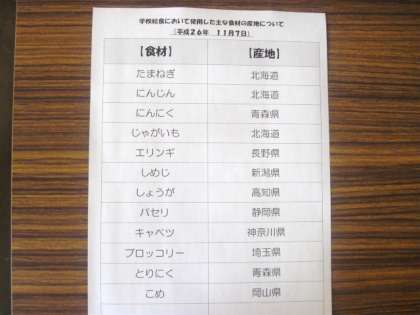 学校給食において使用した主な食材の産地について
（平成26年　11月7日）
【食材】　【産地】
たまねぎ　北海道
にんじん　北海道
にんにく　青森県
じゃがいも　北海道
エリンギ　長野県
しめじ　新潟県
しょうが　高知県
パセリ　静岡県
キャベツ　神奈川県
ブロッコリー　埼玉県
とりにく　青森県
こめ　岡山県